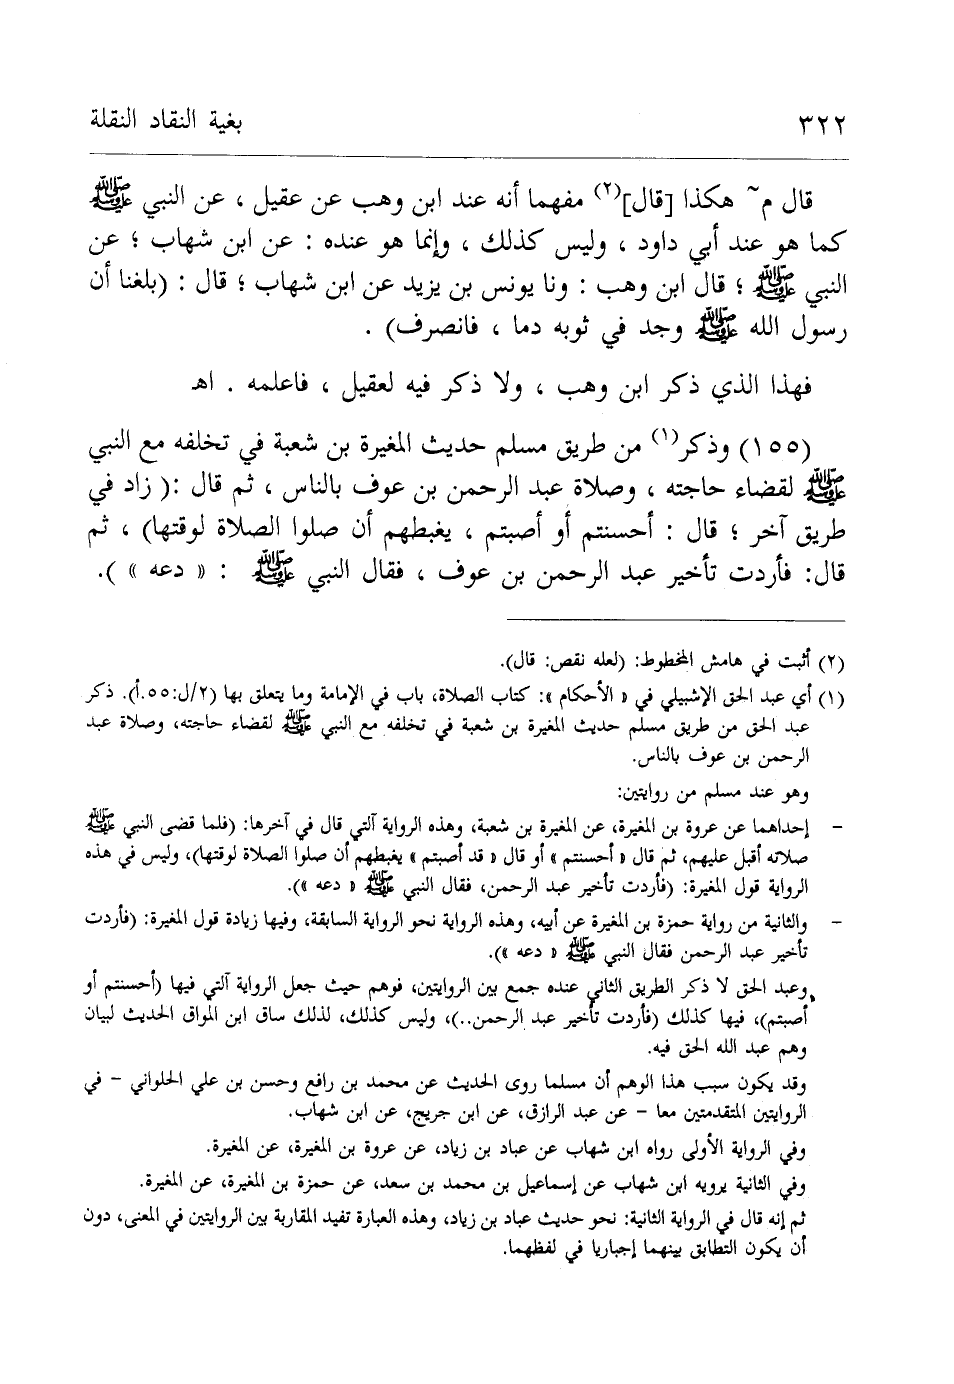 ٣٢٢ بغية النقاد النقلة
قال م~ هكذا [قال](٢) مفهما أنه عند ابن وهب عن عقيل ، عن النبي ﷺ
كما هو عند أبي داود ، وليس كذلك ، وإنما هو عنده : عن ابن شهاب ؛ عن
النبي ﷺ ؛ قال ابن وهب : ونا يونس بن يزيد عن ابن شهاب ؛ قال : (بلغنا أن
رسول الله ﷺ وجد في ثوبه دما ، فانصرف) .
فهذا الذي ذكر ابن وهب ، ولا ذكر فيه لعقيل ، فاعلمه . اهـ
(١٥٥) وذكر(١) من طريق مسلم حديث المغيرة بن شعبة في تخلفه مع النبي
ﷺ لقضاء حاجته ، وصلاة عبد الرحمن بن عوف بالناس ، ثم قال :( زاد في
طريق آخر ؛ قال : أحسنتم أو أصبتم ، يغبطهم أن صلوا الصلاة لوقتها) ، ثم
قال: فأردت تأخير عبد الرحمن بن عوف ، فقال النبي ﷺ : « دعه » ).
(٢) أثبت في هامش المخطوط: (لعله نقص: قال).
(١) أي عبد الحق الإشبيلي في « الأحكام »: كتاب الصلاة، باب في الإمامة وما يتعلق بها (٢/ل:٥٥.أ). ذكر
عبد الحق من طريق مسلم حديث المغيرة بن شعبة في تخلفه مع النبي ﷺ لقضاء حاجته، وصلاة عبد
الرحمن بن عوف بالناس.
وهو عند مسلم من روايتين:
– إحداهما عن عروة بن المغيرة، عن المغيرة بن شعبة، وهذه الرواية آلتي قال في آخرها: (فلما قضى النبي ﷺ
صلاته أقبل عليهم، ثم قال « أحسنتم » أو قال « قد أصبتم » يغبطهم أن صلوا الصلاة لوقتها)، وليس في هذه
الرواية قول المغيرة: (فأردت تأخير عبد الرحمن، فقال النبي ﷺ « دعه »).
– والثانية من رواية حمزة بن المغيرة عن أبيه، وهذه الرواية نحو الرواية السابقة، وفيها زيادة قول المغيرة: (فأردت
تأخير عبد الرحمن فقال النبي ﷺ « دعه »).
وعبد الحق لا ذكر الطريق الثاني عنده جمع بين الروايتين، فوهم حيث جعل الرواية آلتي فيها (أحسنتم أو
أصبتم)، فيها كذلك (فأردت تأخير عبد الرحمن..)، وليس كذلك، لذلك ساق ابن المواق الحديث لبيان
وهم عبد الله الحق فيه.
وقد يكون سبب هذا الوهم أن مسلما روى الحديث عن محمد بن رافع وحسن بن علي الحلواني – في
الروايتين المتقدمتين معا – عن عبد الرازق، عن ابن جريج، عن ابن شهاب.
وفي الرواية الأولى رواه ابن شهاب عن عباد بن زياد، عن عروة بن المغيرة، عن المغيرة.
وفي الثانية يرويه ابن شهاب عن إسماعيل بن محمد بن سعد، عن حمزة بن المغيرة، عن المغيرة.
ثم إنه قال في الرواية الثانية: نحو حديث عباد بن زياد، وهذه العبارة تفيد المقاربة بين الروايتين في المعنى، دون
أن يكون التطابق بينهما إجباريا في لفظهما.